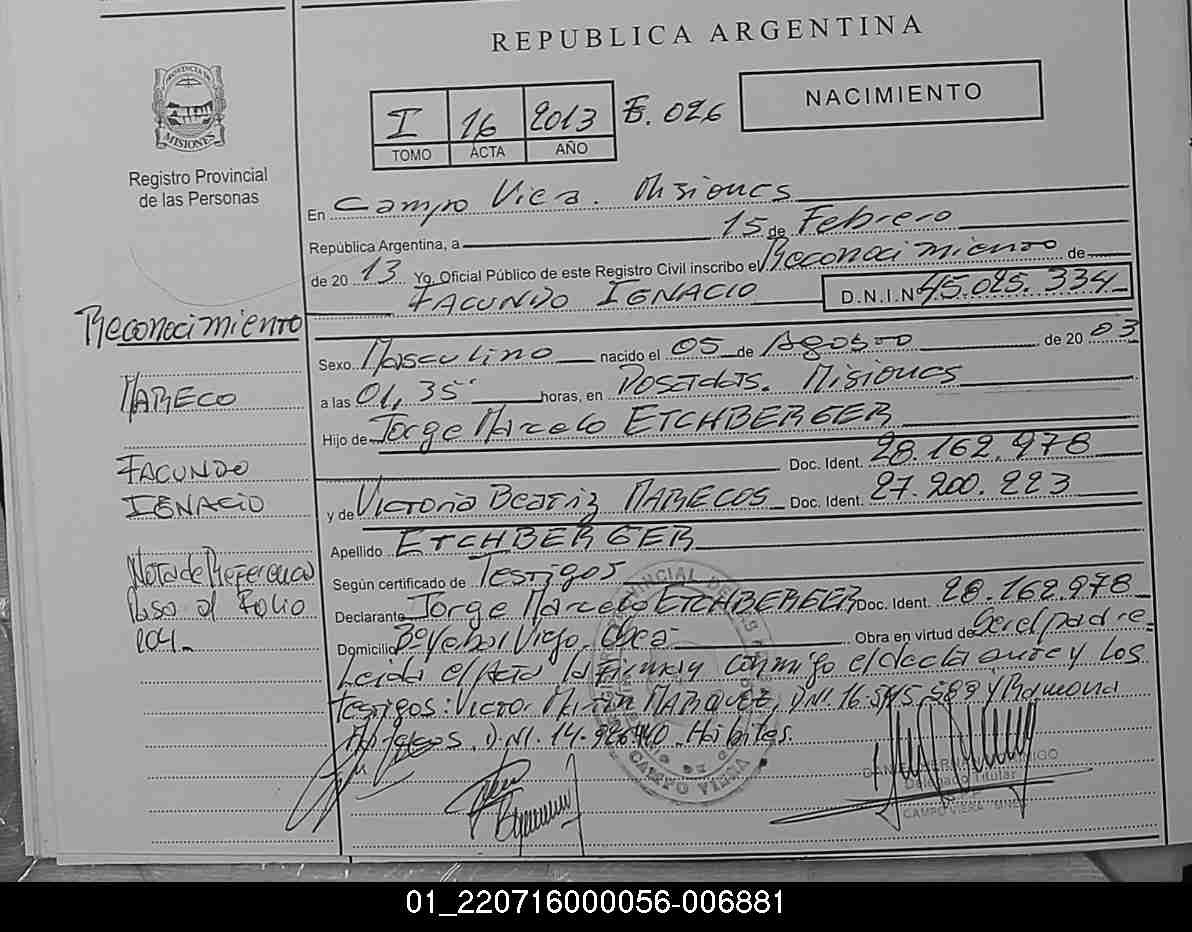 REPUBLICA ARGENTINA
PROVINCIA DE
MISIONES
Registro Provincial
de las Personas
I 16 2013 E. 026
TOMO ACTA AÑO
NACIMIENTO
En Campo Viera. Misiones
República Argentina, a 15 de Febrero
de 20 13 Yo, Oficial Público de este Registro Civil inscribo el Reconocimiento de
FACUNDO IGNACIO D.N.I.Nº 45.025.334
Sexo Masculino nacido el 05 de Agosto de 20 03
a las 01,35 horas, en Posadas. Misiones
Hijo de Jorge Marcelo ETCHBERGER
Doc. Ident. 28.162.978
y de Victoria Beatriz MARECOS Doc. Ident. 27.200.223
Apellido ETCHBERGER
Según certificado de Testigos
Declarante Jorge Marcelo ETCHBERGER Doc. Ident. 28.162.978
Domicilio Bº Yerbal Viejo. Oberá Obra en virtud de Ser el padre
Leida el Acta la firma y conmigo el declarante y los
Testigos: Victor MARQUEZ, DNI. 16.545.589 y Ramona
D.N.I. 14.926440 Hábiles.
Reconocimiento
MARECO
FACUNDO
IGNACIO
Nota de Referencia
Paso al Folio
104
CAMPO VIERA
Delegado Titular
CAMPO VIERA - MNES
01_220716000056-006881